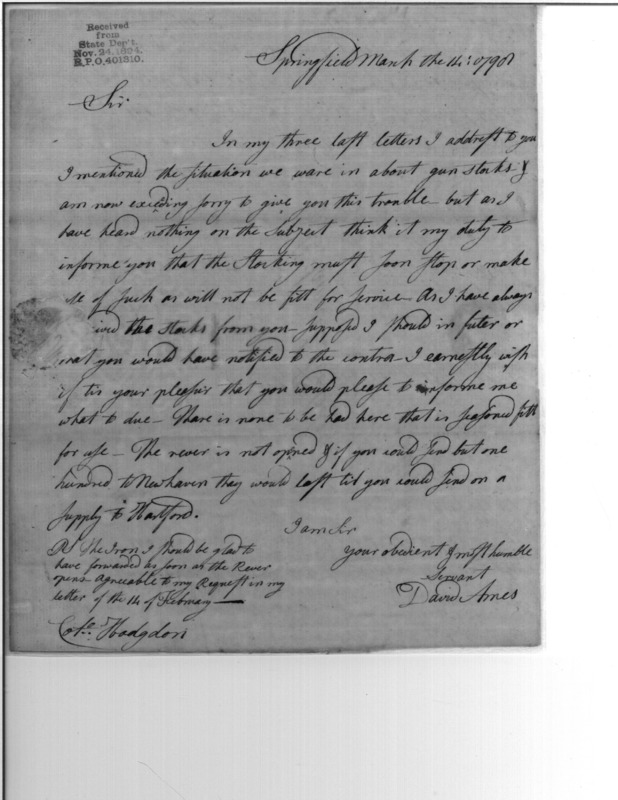 Received
from
State Dep't.
Nov. 24. 1894.
R.P.O. 401310.
Springfield March the 14: 1798
Sir
In my three last letters I addrest to you
I mentioned the situation we ware in about gun stocks &
am now exceding sorry to give you this trouble but as I
have heard nothing on the subject think it my duty to
informe you that the Stocking must soon stop or make
use of such as will not be fitt for service – As I have always
the stocks from you – supposd I should in futer or
that you would have notified to the contra – I earnestly wish
if tis your pleasur that you would please to informe me
what to due – Thare is none to be had here that is seasoned fitt
for use – The rever is not opned & if you could send but one
hundred to Newhaven they would last til you could send on a
supply to Hartford.
I am Sir
your obedient & most humble
Servant
David Ames
PS The Iron I should be glad to
have forwarded as soon as the Rever
opens agreeable to my Request in my
letter of the 14 of Febrary —
Colo. Hodgdon